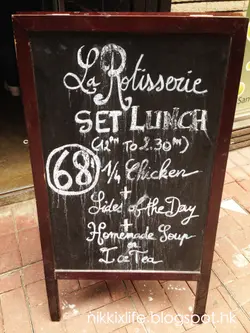 La Rotisserie
SET LUNCH
(12ᴺᴺ TO 2.30ᴾᴹ)
68 1/4 Chicken
+
Sides of the Day
+
Homemade Soup
or
Ice Tea
nikkixlife.blogspot.hk